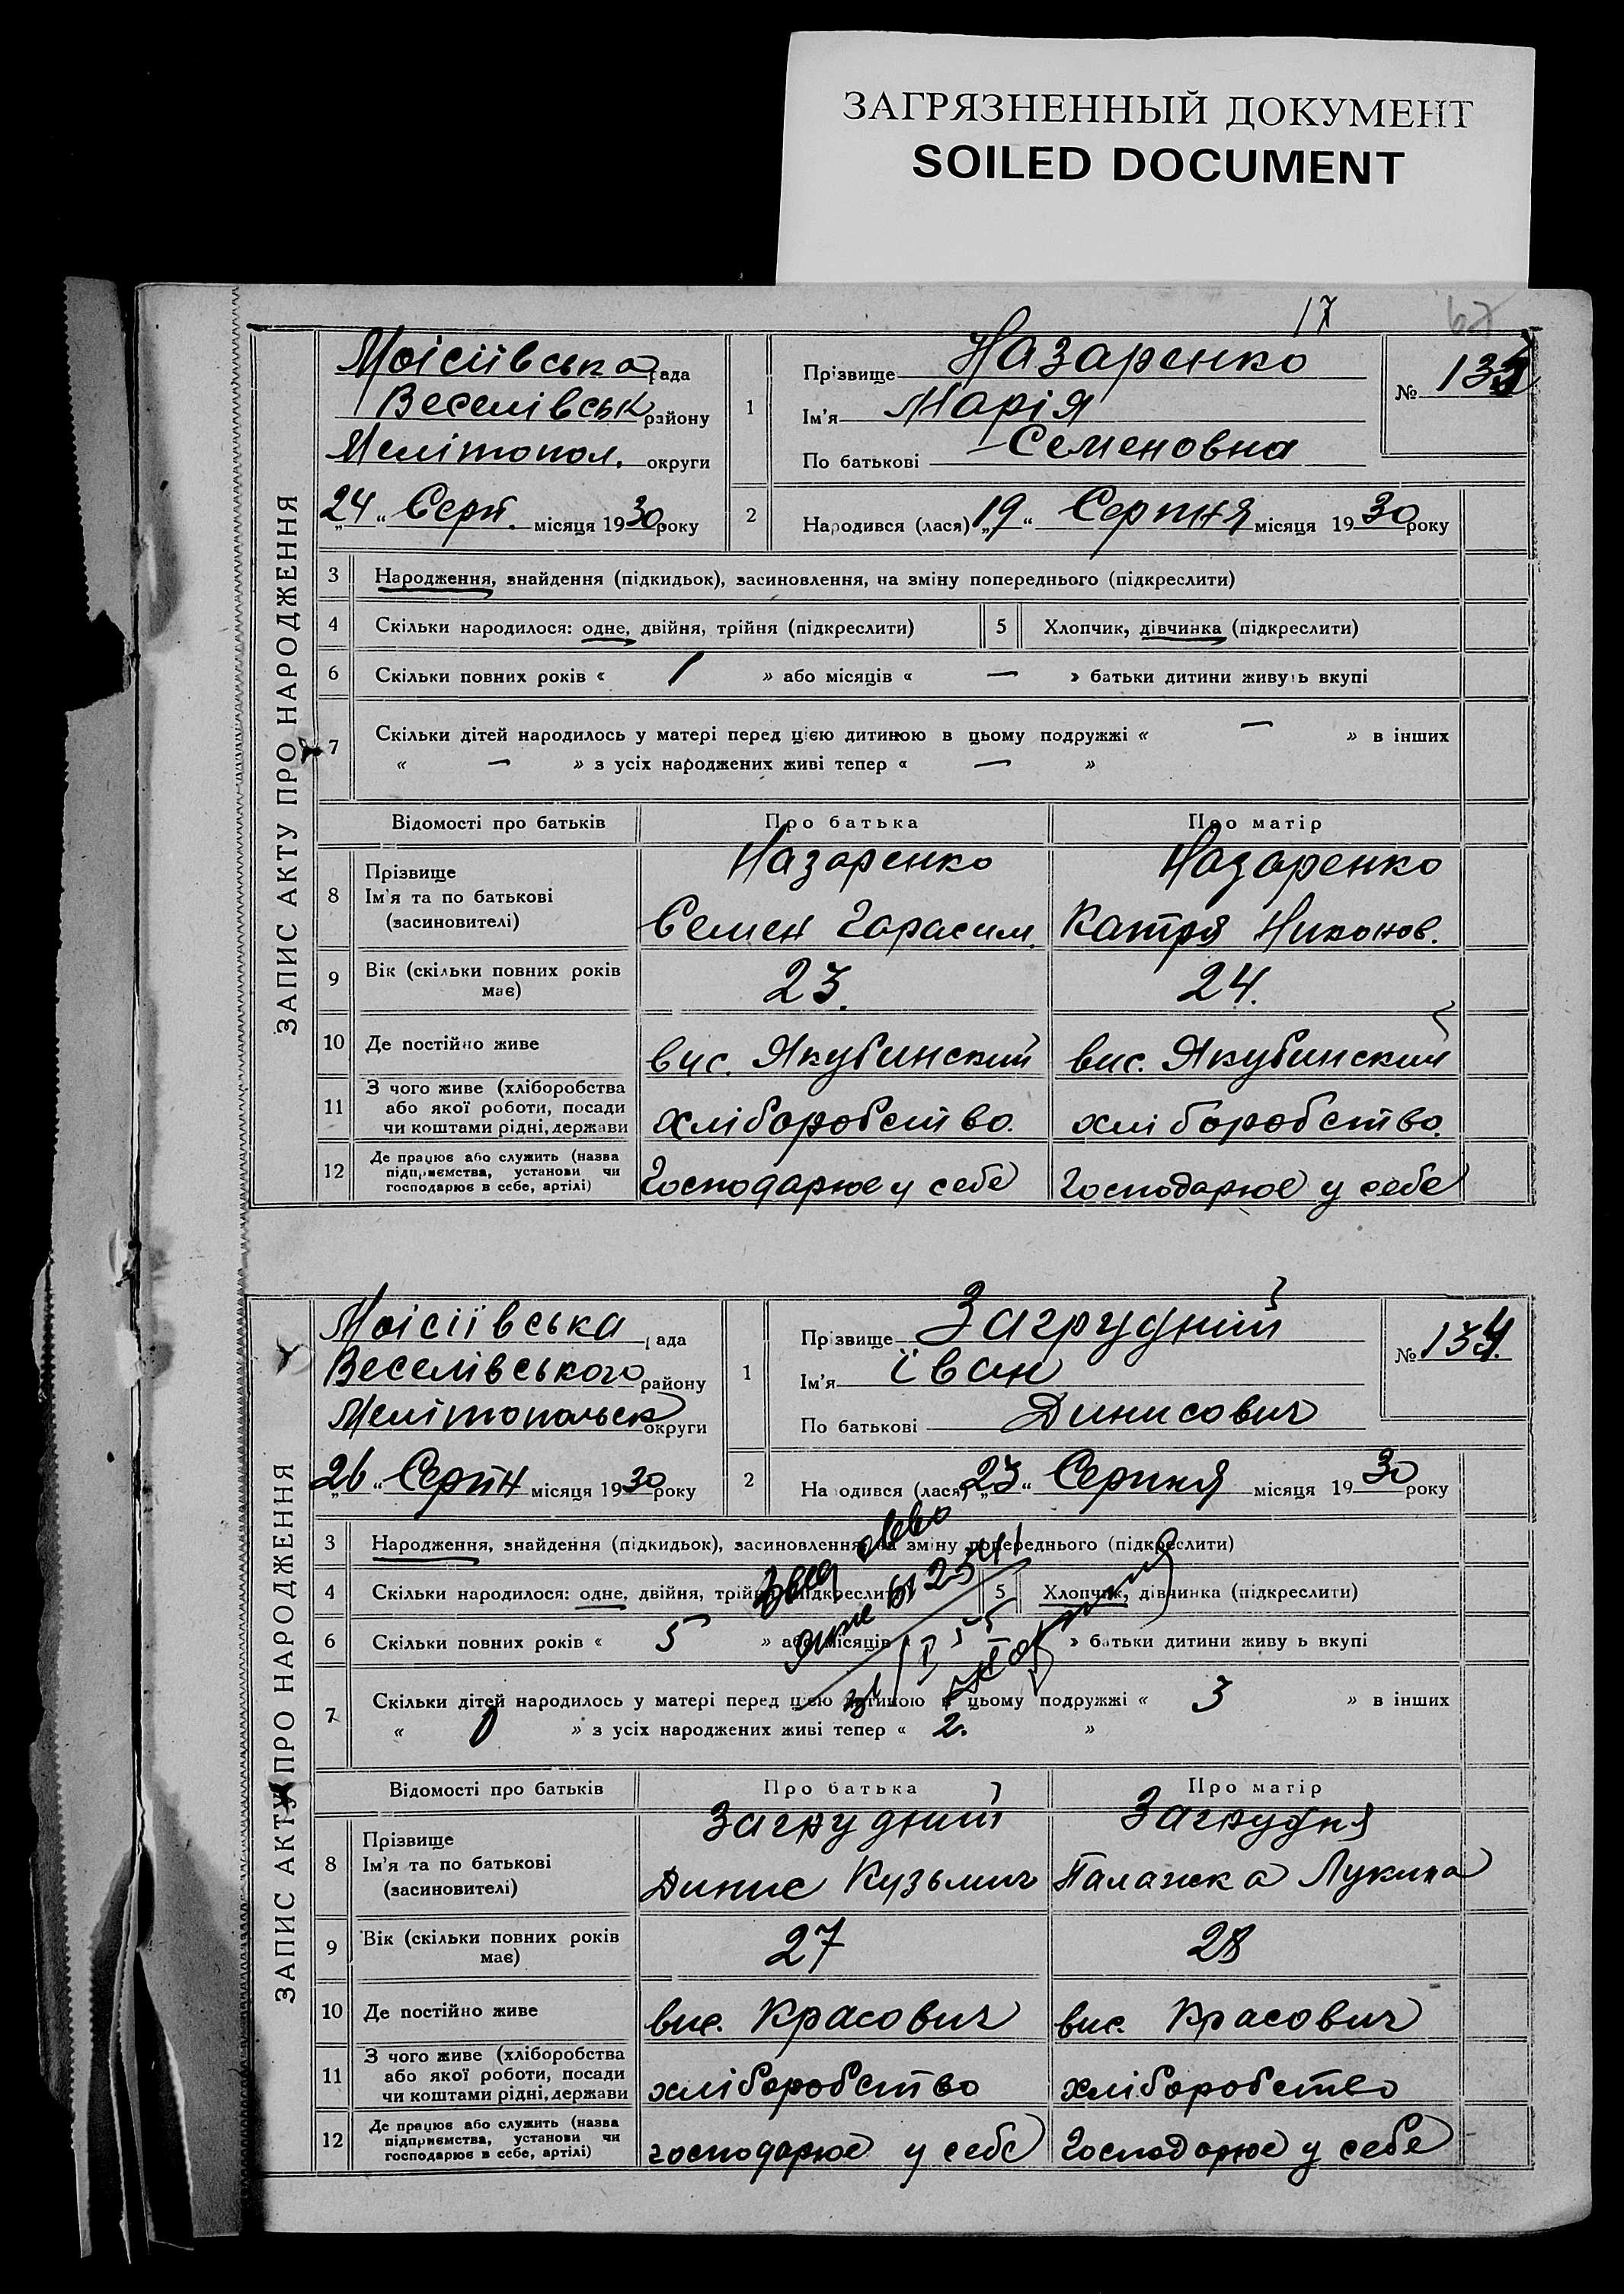 ЗАГРЯЗНЕННЫЙ ДОКУМЕНТ
SOILED DOCUMENT
17
67
ЗАПИС АКТУ ПРО НАРОДЖЕННЯ
Моісіївська рада
Веселівськ району
Мелітопол. округи
„24“ Серп. місяця 1930 року
1 Прізвище Назаренко
Ім'я Марія
По батькові Семеновна
№ 133
2 Народився (лася) „19“ Серпня місяця 1930 року
3 Народження, знайдення (підкидьок), засиновлення, на зміну попереднього (підкреслити)
4 Скільки народилося: одне, двійня, трійня (підкреслити) 5 Хлопчик, дівчинка (підкреслити)
6 Скільки повних років « 1 » або місяців « — » батьки дитини живуть вкупі
7 Скільки дітей народилось у матері перед цією дитиною в цьому подружжі « — » в інших
« — » з усіх народжених живі тепер « — »
Відомості про батьків Про батька Про матір
8 Прізвище Назаренко Назаренко
Ім'я та по батькові
(засиновителі) Семен Гарасим. Катря Никонов.
9 Вік (скільки повних років має) 23. 24.
10 Де постійно живе вис. Якубинский вис. Якубинский
11 З чого живе (хліборобства
або якої роботи, посади
чи коштами рідні, держави хліборобство. хліборобство.
12 Де працює або служить (назва
підприємства, установи чи
господарює в себе, артілі) Господарює у себе Господарює у себе
ЗАПИС АКТУ ПРО НАРОДЖЕННЯ
Моісіївська рада
Веселівського району
Мелітопольськ округи
„26“ Серпн місяця 1930 року
1 Прізвище Загрудний
Ім'я Їван
По батькові Динисович
№ 134.
2 Народився (лася) „23“ Серпня місяця 1930 року
3 Народження, знайдення (підкидьок), засиновлення, на зміну попереднього (підкреслити)
4 Скільки народилося: одне, двійня, трійня (підкреслити) 5 Хлопчик, дівчинка (підкреслити)
6 Скільки повних років « 5 » або місяців « » батьки дитини живуть вкупі
7 Скільки дітей народилось у матері перед цією дитиною в цьому подружжі « 3 » в інших
« » з усіх народжених живі тепер « 2. »
Відомості про батьків Про батька Про матір
8 Прізвище Загрудний Загрудня
Ім'я та по батькові
(засиновителі) Динис Кузьмич Палажка Лукина
9 Вік (скільки повних років має) 27 28
10 Де постійно живе вис. Красович вис. Красович
11 З чого живе (хліборобства
або якої роботи, посади
чи коштами рідні, держави хліборобство хліборобство
12 Де працює або служить (назва
підприємства, установи чи
господарює в себе, артілі) господарює у себе Господарює у себе